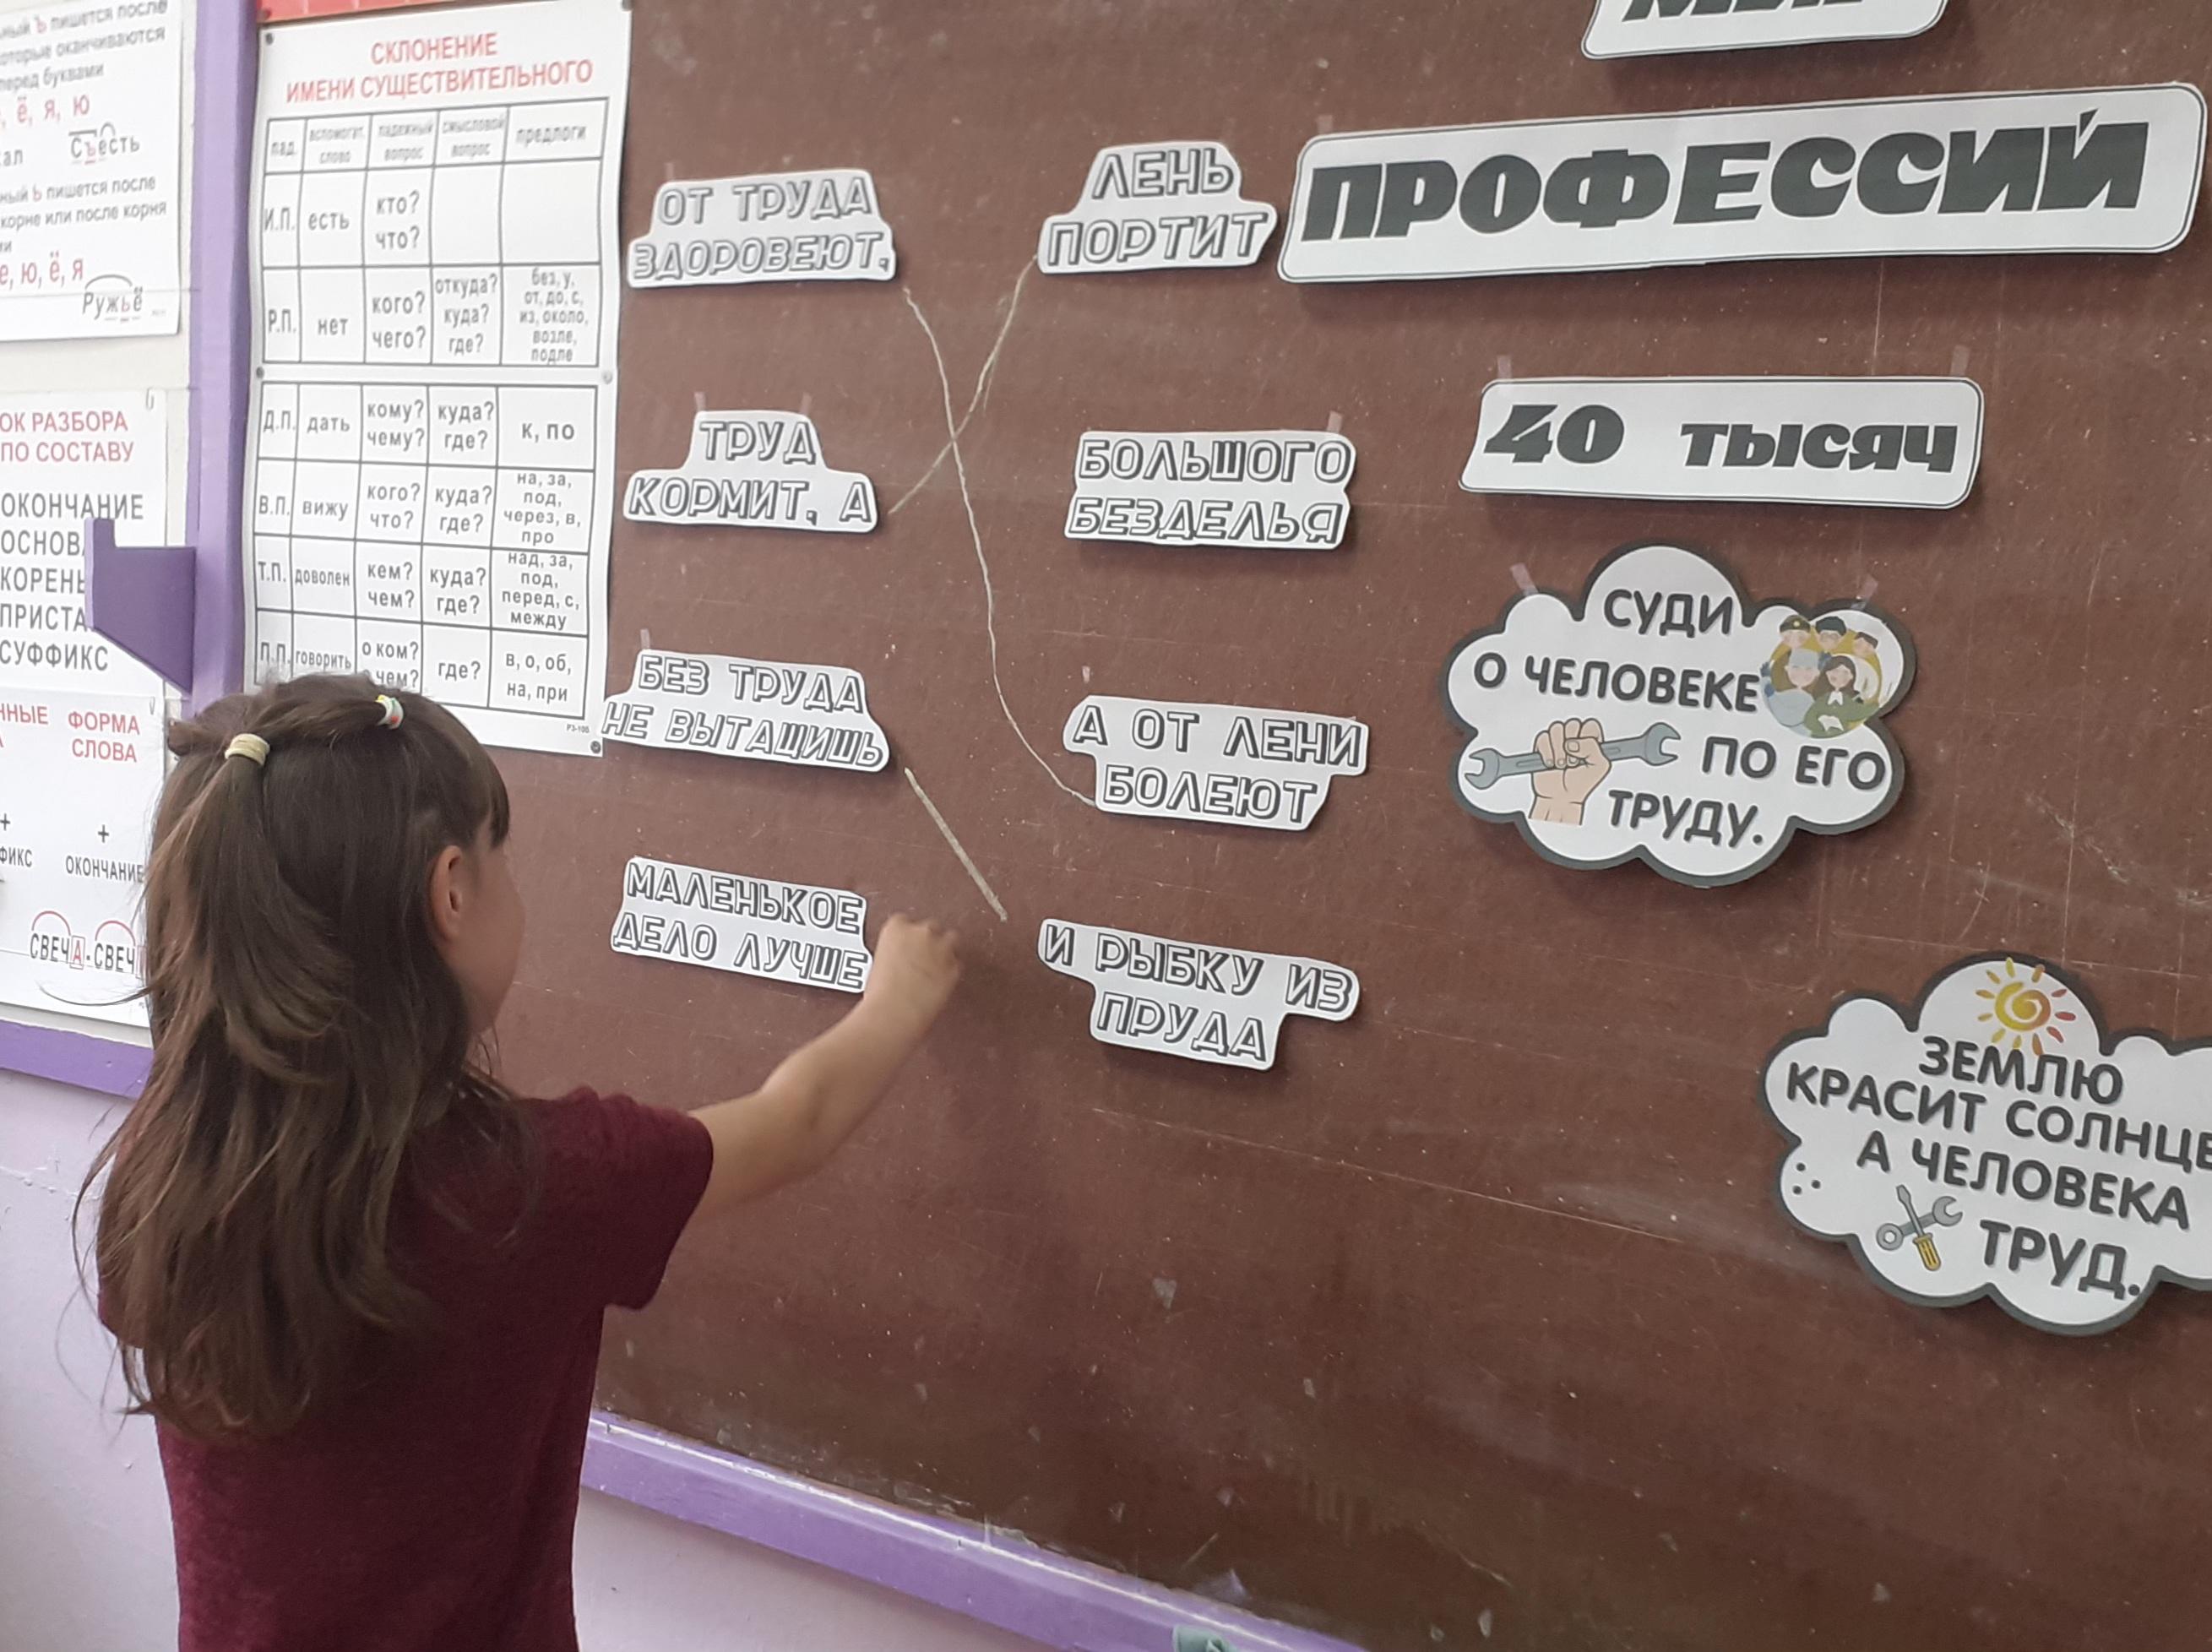 ный Ъ пишется после
которые оканчиваются
перед буквами
ё, я, ю
Съесть
ный Ь пишется после
корне или после корня
е, ю, ё, я
Ружьё
ОК РАЗБОРА
ПО СОСТАВУ
ОКОНЧАНИЕ
ОСНОВ
КОРЕНЬ
ПРИСТА
СУФФИКС
ФОРМА
СЛОВА
+ +
ФИКС ОКОНЧАНИЕ
СВЕЧА-СВЕЧ
СКЛОНЕНИЕ
ИМЕНИ СУЩЕСТВИТЕЛЬНОГО
пад. вспомогат. слово падежный вопрос смысловой вопрос предлоги
И.П. есть кто? что?
Р.П. нет кого? чего? откуда? куда? где? без, у, от, до, с, из, около, возле, подле
Д.П. дать кому? чему? куда? где? к, по
В.П. вижу кого? что? куда? где? на, за, под, через, в, про
Т.П. доволен кем? чем? куда? где? над, за, под, перед, с, между
П.П. говорить о ком? чем? где? в, о, об, на, при
ОТ ТРУДА
ЗДОРОВЕЮТ,
ЛЕНЬ
ПОРТИТ
ТРУД
КОРМИТ, А
БОЛЬШОГО
БЕЗДЕЛЬЯ
БЕЗ ТРУДА
НЕ ВЫТАЩИШЬ
А ОТ ЛЕНИ
БОЛЕЮТ
МАЛЕНЬКОЕ
ДЕЛО ЛУЧШЕ
И РЫБКУ ИЗ
ПРУДА
МИР
ПРОФЕССИЙ
40 тысяч
СУДИ
О ЧЕЛОВЕКЕ
ПО ЕГО
ТРУДУ.
ЗЕМЛЮ
КРАСИТ СОЛНЦЕ
А ЧЕЛОВЕКА
ТРУД.